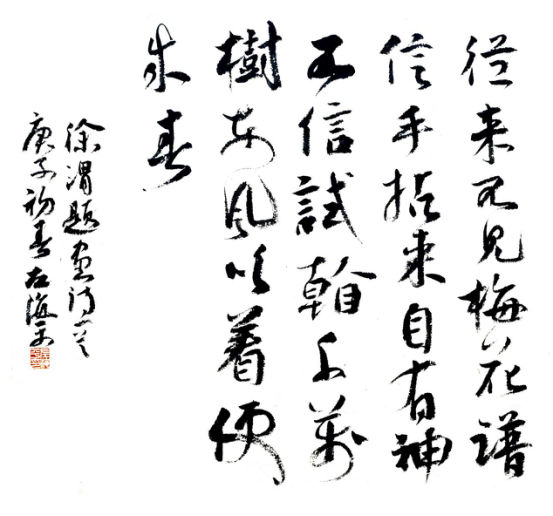 從来不見梅花譜
信手拈来自有神
不信試看千萬
樹东風吹着便
成春
徐渭題畫詩一首
庚子初春左海